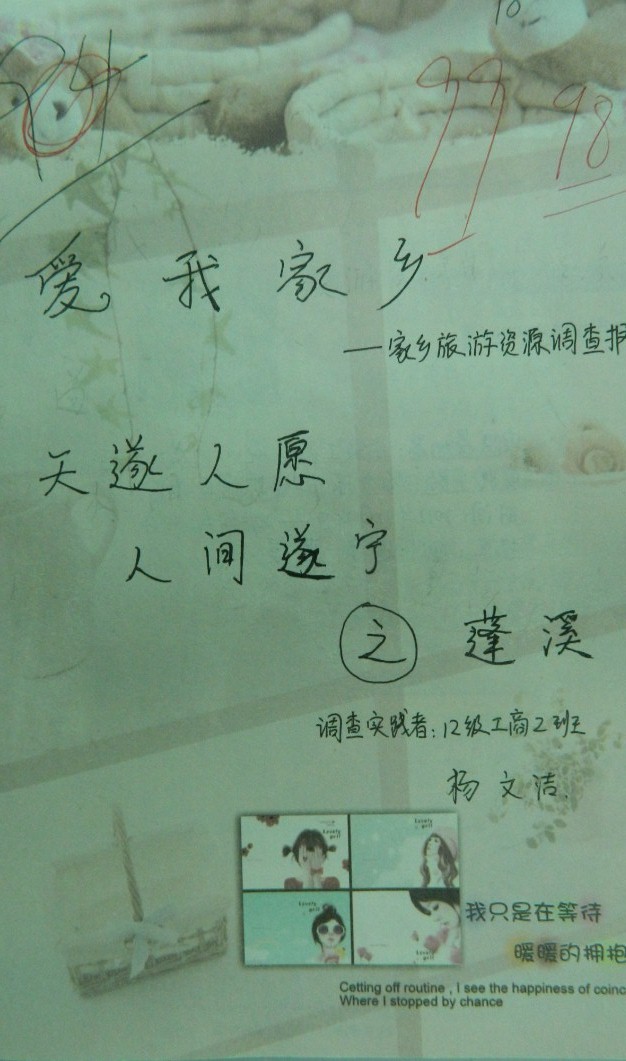 10
94
99
98
爱我家乡
—家乡旅游资源调查报
天遂人愿
人间遂宁
之 蓬溪
调查实践者:12级工商2班
杨文洁.
Lovely girl
Lovely girl
Lovely girl
Lovely girl
我只是在等待
暖暖的拥抱
Cetting off routine , I see the happiness of coinc
Where I stopped by chance